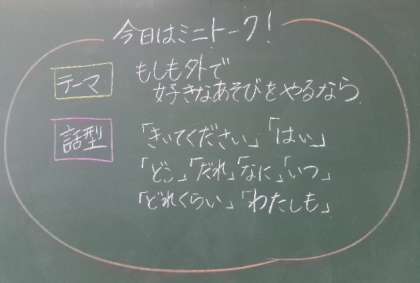 今日はミニトーク!
テーマ
もしも外で
好きなあそびをやるなら
話型
「きいてください」「はい」
「どこ」「だれ」「なに」「いつ」
「どれくらい」「わたしも」